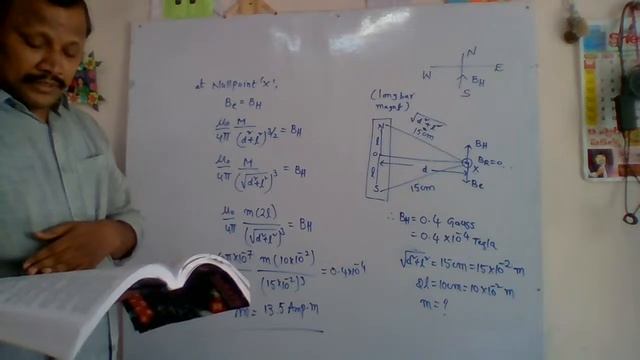 at Nullpoint 'x',
Be = BH
μ0/4π M/(d²+l²)^3/2 = BH
μ0/4π M/(√d²+l²)³ = BH
μ0/4π m(2l)/(√d²+l²)³ = BH
π×10⁻⁷ m(10×10⁻²)/(15×10⁻²)³ = 0.4×10⁻⁴
m = 13.5 Amp-m
N
W E
BH
S
(long bar
magnet)
√d²+l²
15cm
N
l
O
l
S
d
15cm
BH
BR=0
x
Be
∴ BH = 0.4 Gauss
= 0.4×10⁻⁴ Tesla
√d²+l² = 15cm = 15×10⁻² m
2l = 10cm = 10×10⁻² m
m = ?